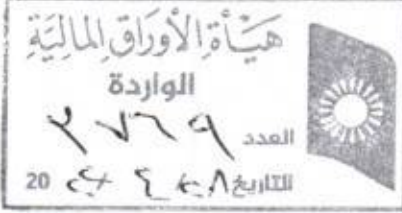 هيأة الأوراق المالية
الواردة
العدد ٢٧٦٩
التاريخ ٢٨ ٤ 20